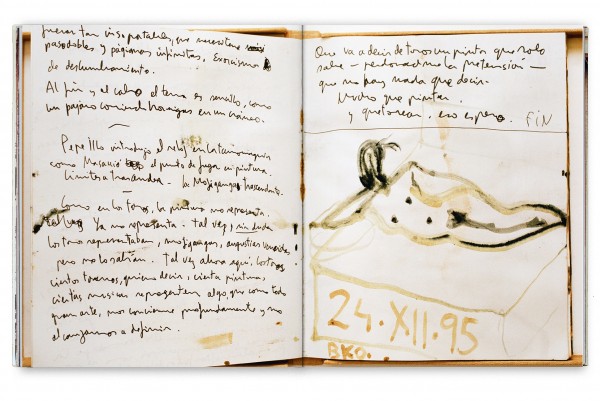 fueran tan insoportables, que necesitan
pasodobles y páginas infinitas. Exorcismos
de deslumbramiento.
Al fin y al cabo el tema es sencillo, como
un pájaro comiendo hormigas en un cráneo.
Pepe Illo introdujo el reloj en la tauromaquia
como Masaccio el punto de fuga en pintura.
Límites a trascender. la trascendente.
Como en los toros, la pintura no representa.
Ya no representa. Tal vez, sin duda
los toros representaban,
pero no lo sabían. Tal vez ahora aquí, los toros
ciertos toreros, quiero decir, cierta pintura,
ciertas músicas representen algo, que como todo
gran arte, nos conciene profundamente y no
alcanzamos a definir.
Que va a decir de toros un pintor que solo
sabe – perdonadme la pretensión –
que no hay nada que decir.
Mucho que pintar.
y que torear, eso espero. FIN
24.XII.95
BKO.